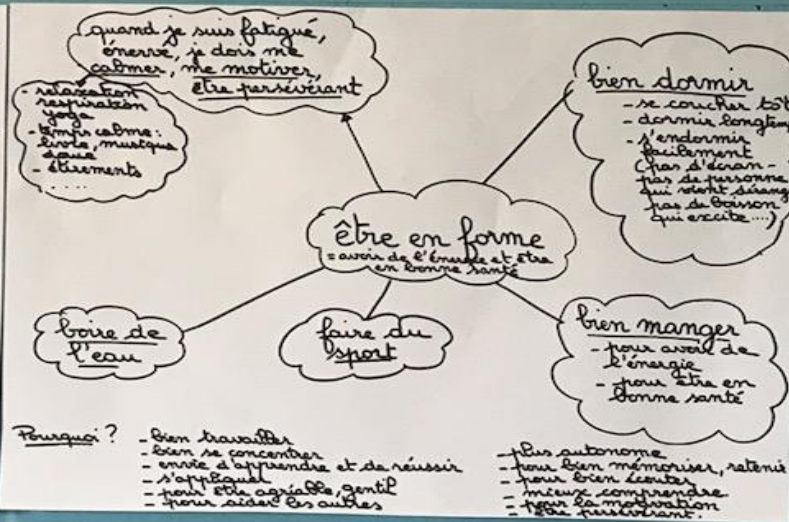 quand je suis fatigué,
énervé, je dois me
calmer, me motiver,
être persévérant
- relaxation
respiration
yoga
- temps calme :
livre, musique
douce
- étirements
. . . .
bien dormir
- se coucher tôt
- dormir
- s'endormir
facilement
(pas d'écran -
pas de personne
qui vient
pas de boisson
qui excite ....)
être en forme
= avoir de l'énergie et être
en bonne santé
boire de
l'eau
faire du
sport
bien manger
- pour avoir de
l'énergie
- pour être en
bonne santé
Pourquoi ?
- bien travailler
- bien se concentrer
- envie d'apprendre et de réussir
- s'appliquer
- pour être agréable, gentil
- pour aider les autres
- plus autonome
- pour bien mémoriser, retenir
- pour bien écouter
- mieux comprendre
- pour la motivation
- être persévérant.